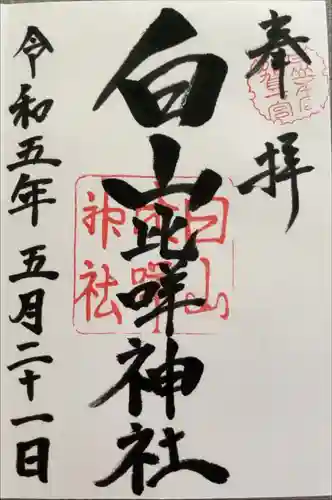 奉拝
白山比咩神社
白山比咩神社
令和五年五月二十一日